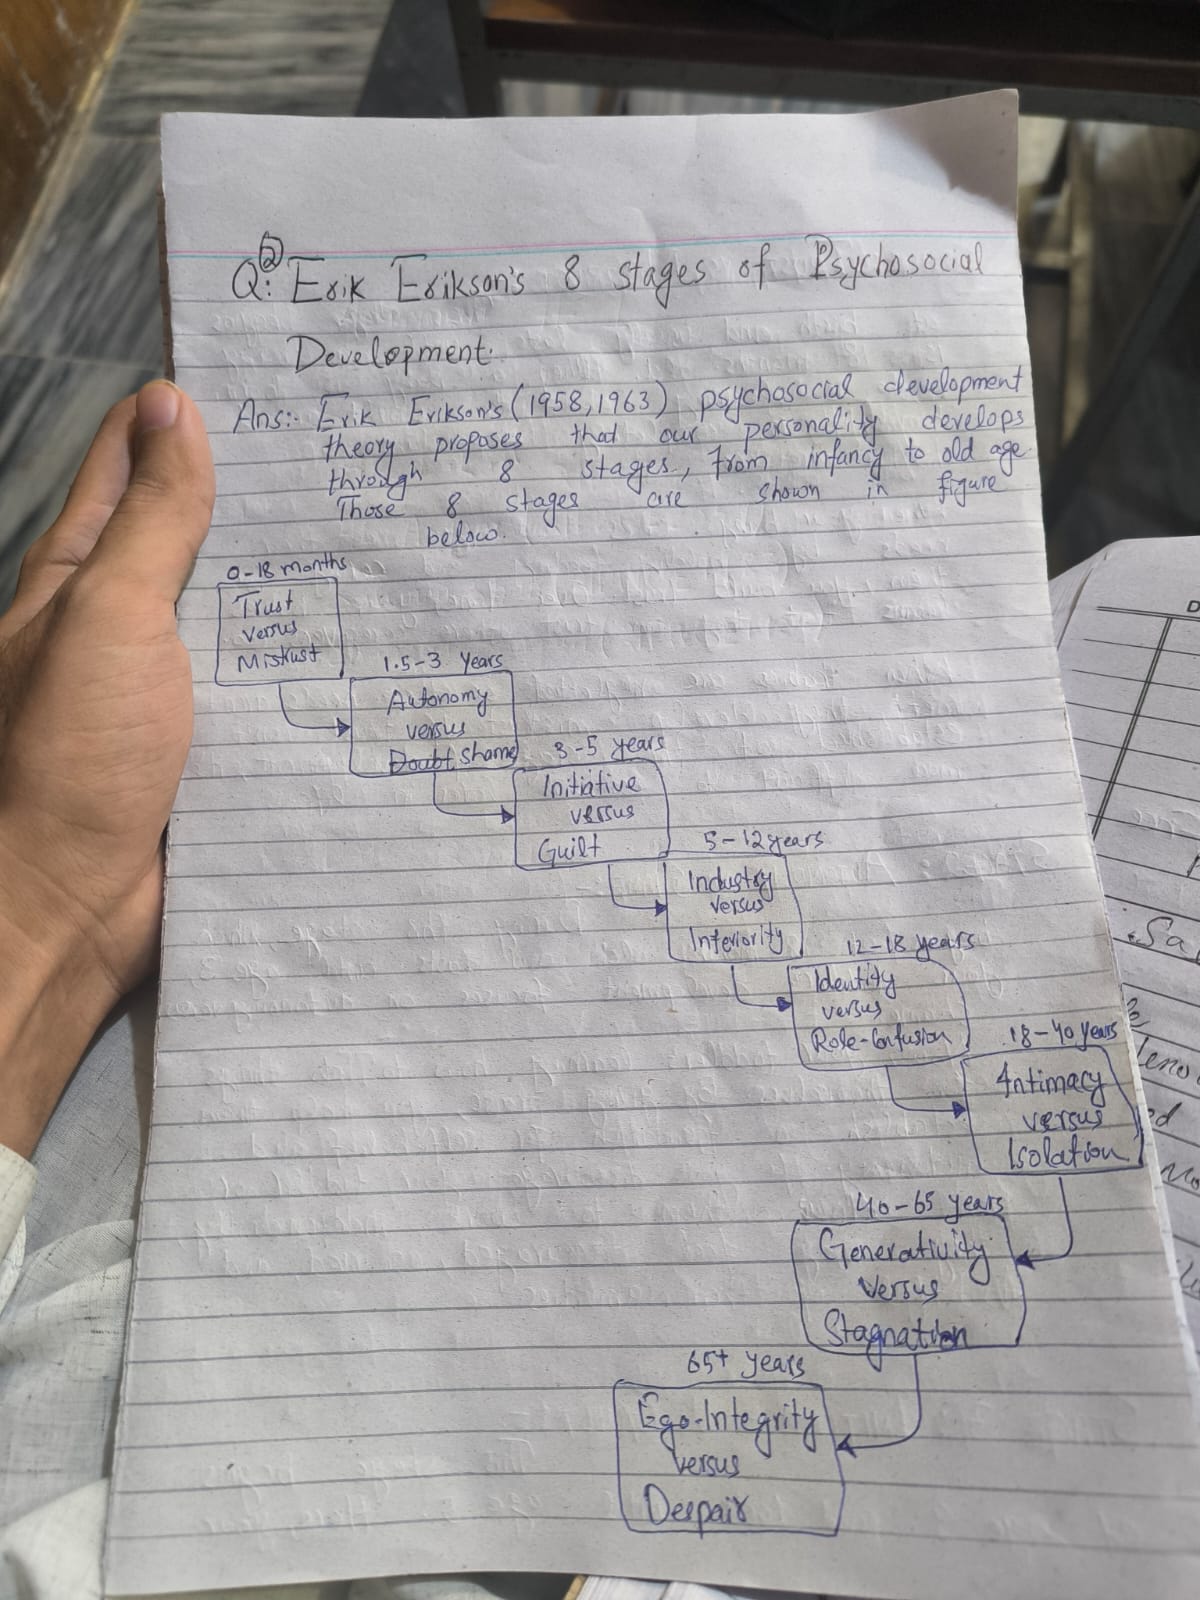 Q: ② Erik Erikson's 8 stages of Psychosocial
Development:
Ans:- Erik Erikson's (1958,1963) psychosocial development
theory proposes that our personality develops
through 8 stages, from infancy to old age.
Those 8 stages are shown in figure
below.
0-18 months
Trust
versus
Mistrust
1.5-3 Years
Autonomy
versus
Doubt, Shame
3-5 years
Initiative
versus
Guilt
5-12 years
Industry
versus
Inferiority
12-18 years
Identity
versus
Role-Confusion
18-40 years
Intimacy
versus
Isolation
40-65 years
Generativity
versus
Stagnation
65+ years
Ego-Integrity
versus
Despair